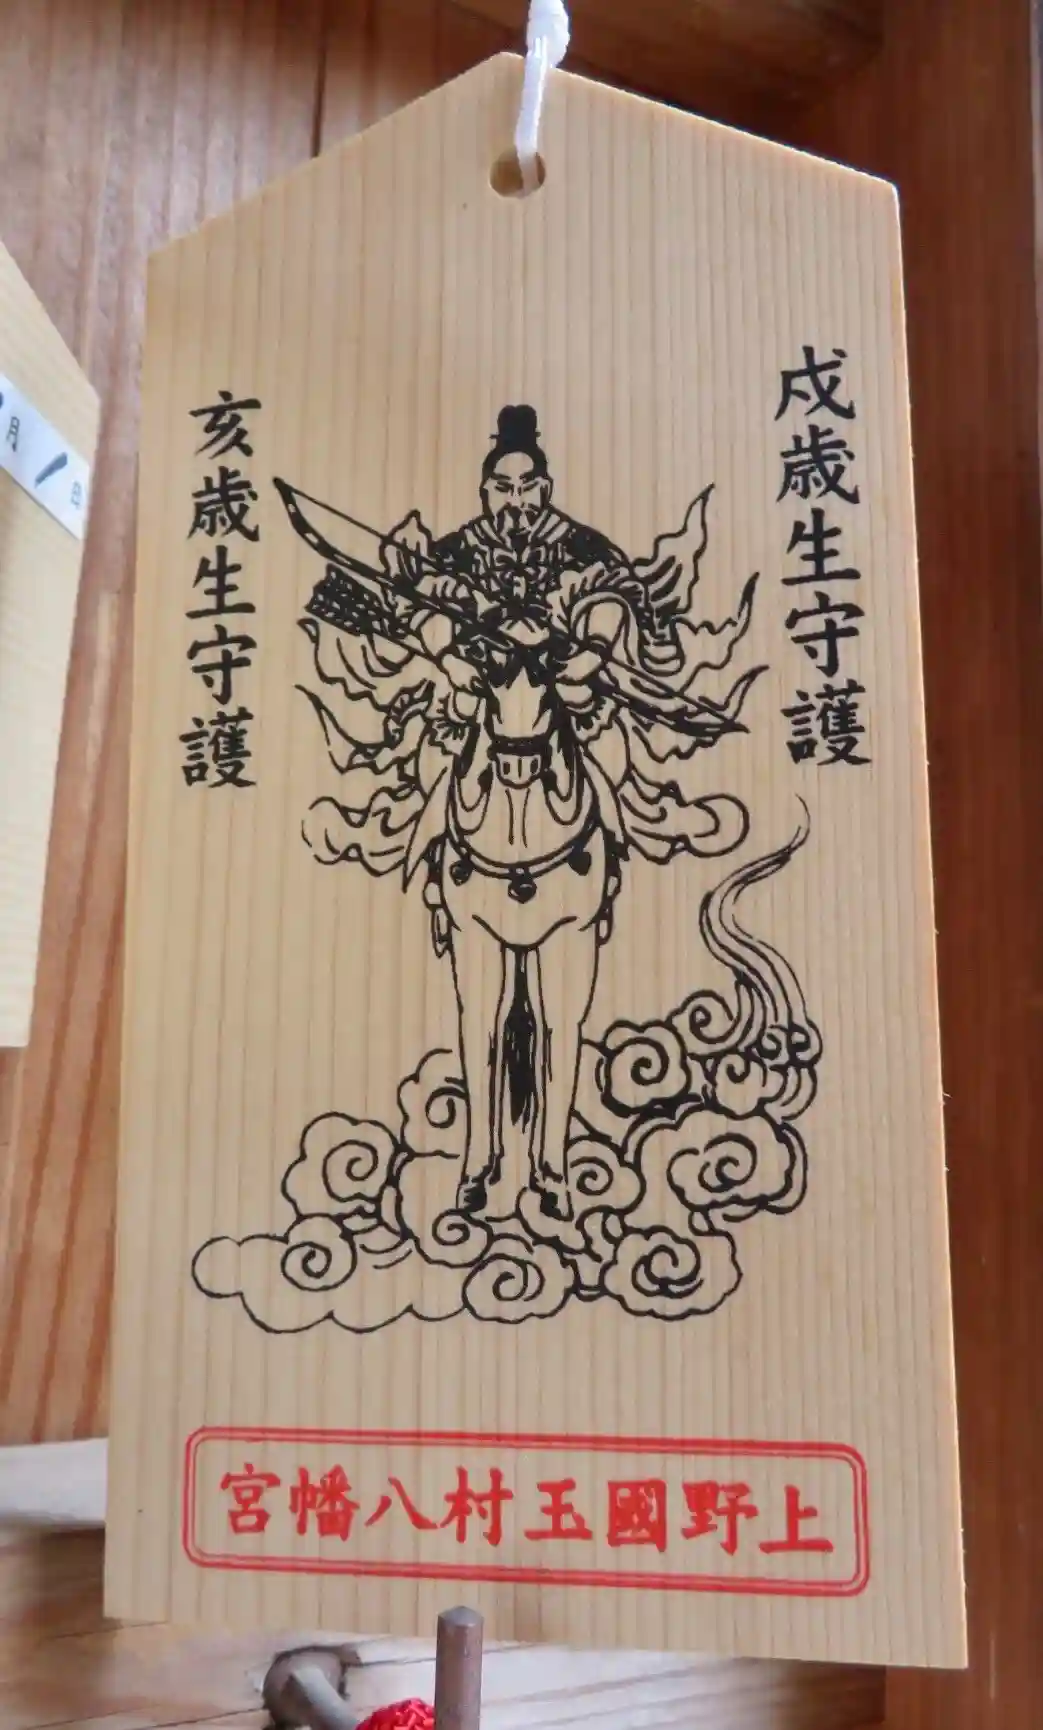 戌歳生守護
亥歳生守護
上野國玉村八幡宮
月
日